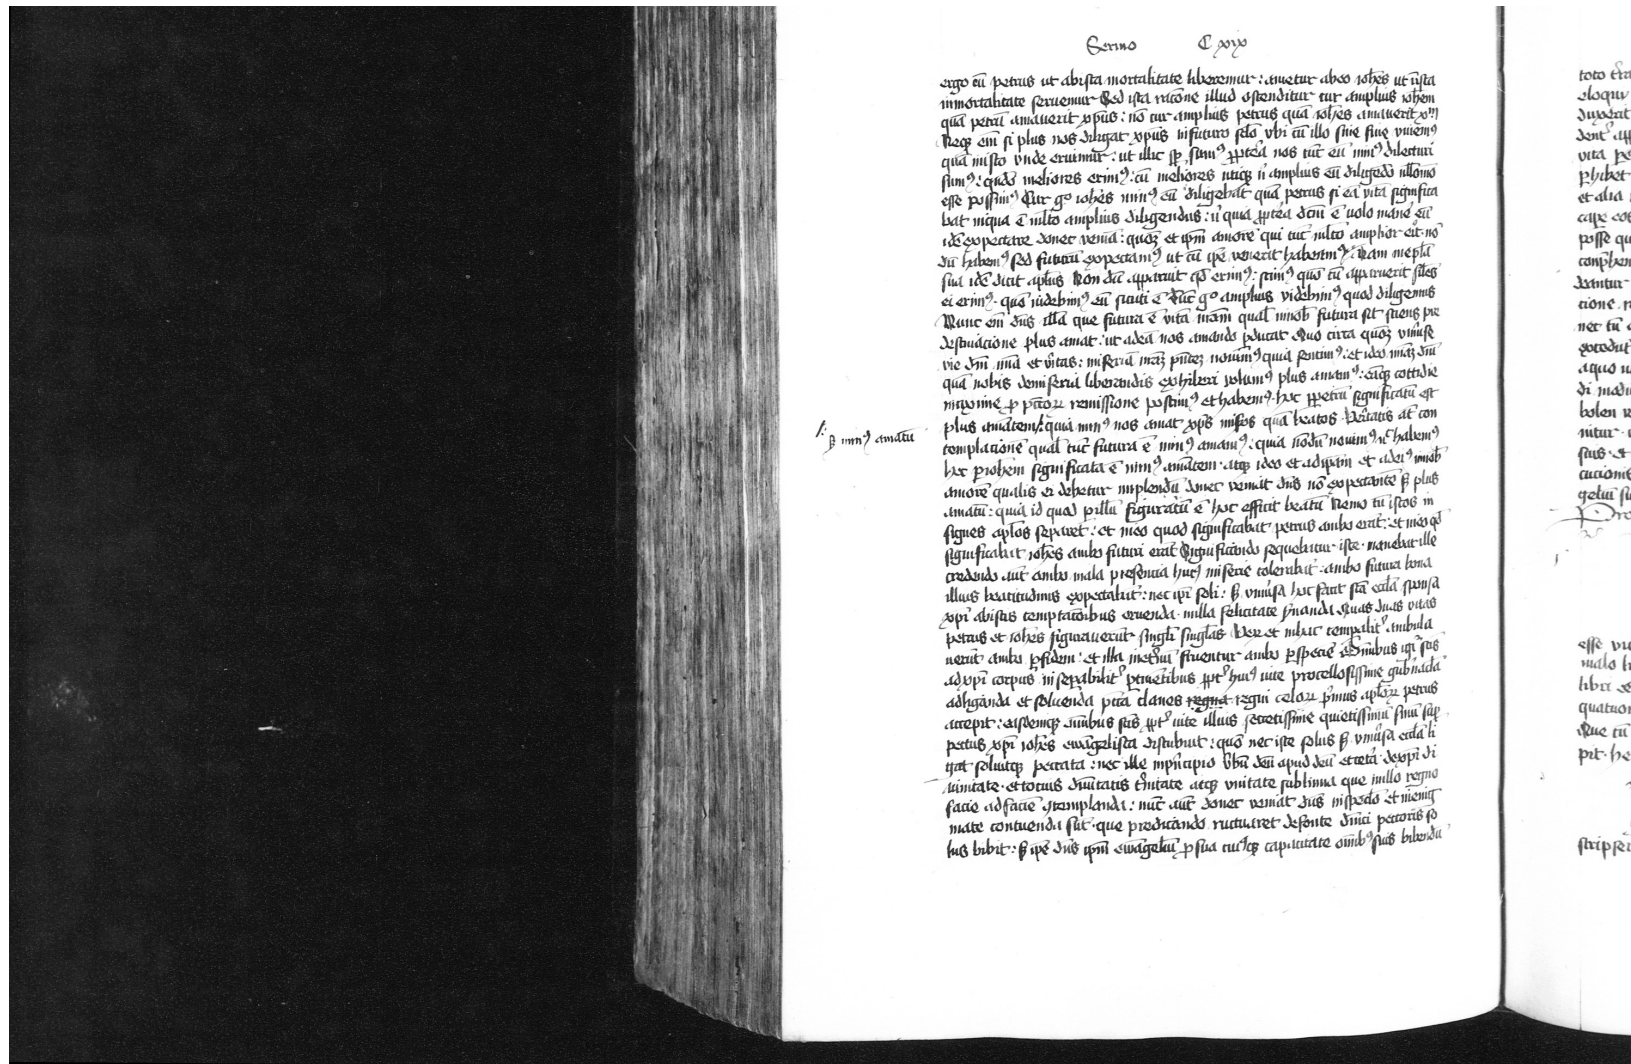 Sermo C xix
ergo cū petrus ut ab ista mortalitate liberemur : ametur ab eo iohēs ut ī ista
inmortalitate seruemur Sed ista racōne illud ostenditur cur amplius iohēm
quā petrū amauerit xp̄us : nō cur amplius petrus quā iohēs amauerit xp̄m
Neqꝫ em̄ si plus nos diligat xp̄us in futuro sclō vbi cū illo sine fine viuemꝰ
quā in isto vnde eruimur : ut illic sp̄ simꝰ ꝓpterea nos tūc eū minꝰ dilecturi
sumꝰ : qn̄do meliores erimꝰ : cū meliores utiqꝫ n̄ amplius eū diligēdo nullomō
esse possimꝰ Cur gͦ iohēs minꝰ eū diligebat quā petrus si eā vitā significa
bat in qua ē mlto amplius diligendus : n̄ quia ꝓpterea dcm̄ ē uolo manē eū
id ē expectare donec veniā : quoꝫ et ip̄m amorē qui tūc mlto amplior erit nō
dū habemꝰ sed futurū expectamꝰ ut cū ip̄e venerit habeamꝰ Nam in ep̄la
sua idē dicit apl̄us Non dū apparuit qd̄ erimꝰ : scimꝰ quō cū apparuerit sil̄es
ei erimꝰ . quō uidebimꝰ eū sicuti ē Tūc gͦ amplius videbimꝰ quod diligemus
Nunc em̄ dn̄s illā que futura ē vitā nr̄am qual̄ in nob̄ futura sit sciens pre
destinacione plus amat : ut ad eā nos amando ꝑducat Quo circa quoꝫ vniuerse
vie dn̄i mīa et v̄itas : miseriā nr̄aꝫ p̄ntēꝫ nouimꝰ quia sentimꝰ : et ideo mīaꝫ dn̄i
quā nobis de miseria liberandis exhiberi volumꝰ plus amamꝰ : eāqꝫ cottidie
maxime ꝓ pctōꝝ remissione poscimꝰ et habemꝰ . hoc ꝑ petrū significatū est
plus amātem /: quia minꝰ nos amat xp̄s mis̄os quā beatos . Veritatis at̄ con
sꝫ minꝰ amatū
templacionē qual̄ tūc futura ē minꝰ amamꝰ : quia nōdū nouimꝰ n̄ habemꝰ
hec ꝑ iohēm significata ē minꝰ amātem . atqꝫ ideo et ad ip̄am et ad eiꝰ in nob̄
amorē qualis ei debetur implendū donec veniat dn̄s nō expectantē sꝫ plus
amatū : quia id quod ꝑ illū figuratū ē hoc efficit beatū Nemo tn̄ istos in
signes apl̄os separet : et in eo quod significabat petrus ambo erāt : et in eo qd̄
significabat iohēs ambo futuri erāt Significādo sequebatur iste . manebat ille
credendo aut̄ ambo mala presencia huiꝰ miserie tolerabāt : ambo futura bona
illius beatitudinis expectabāt : nec ip̄i soli : sꝫ vniūsa hoc facit sctā eccl̄ia sponsa
xp̄i ab istis temptacōibus eruenda . in illa felicitate ẜuanda Quas duas vitas
petrus et iohēs figurauerūt singl̄i singl̄as Ver et in hac tempalitr̄ ambula
uerūt ambo ꝑ fidem : et illa in et̄nū fruentur ambo ꝑ speciē Om̄ibus igr̄ sc̄is
ad xp̄i corpus inseparabilitr̄ ꝑtinētibus ꝓpt̄ huiꝰ uite procellosissime gub̄nacla
ad liganda et soluenda pctā claues regna regni celoꝝ p̄imus apl̄oꝝ petrus
accepit : eisdemqꝫ om̄ibus sc̄is ꝓpt̄ uite illius secretissime quietissimū sinū suꝑ
pectus xp̄i iohēs ewāgelista discubuit : quō nec iste solus sꝫ vniūsa eccl̄ia li
gat soluitqꝫ peccata : nec ille in p̄ncipio v̄bū deū apud deū et cetera de xp̄i di
uinitate . et tocius diuītatis t̄initate atqꝫ vnitate sublimia que in illo regno
facie ad faciē ꝯtemplanda : nūc aut̄ donec veniat dn̄s in spec̄lo et in enig
mate contuenda sūt . que predicando ructuaret de fonte dn̄ici pectoris so
lus bibit : sꝫ ip̄e dn̄s ip̄m ewāgeliū ꝓ sua cuiꝰqꝫ capacitate om̄ibꝰ suis bibendū